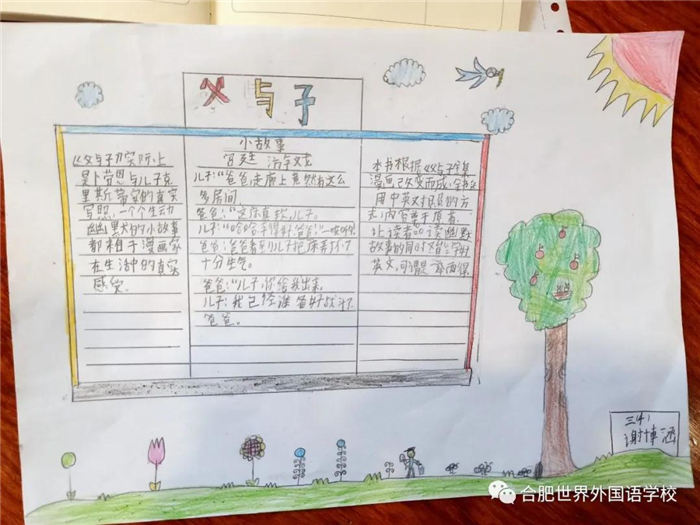 父与子
《父与子》实际上
是卜劳恩与儿子克
里斯蒂安的真实
写照,一个个生动
幽默的小故事
都相于漫画家
在生活中的真实
感受。
小故事
儿子:“爸爸,走廊上竟然有这么
多房间。
爸爸:“这床真软,儿子。
爸爸:爸爸看到儿子把床弄坏了
十分生气。
爸爸:“儿子,你给我出来。
儿子:我已经准备好
爸爸。
本书根据《父与子全集
漫画改变而成,全书采
用中英对照的方
式,内容忠于原著,
让读者在读幽默
故事的同时又能学好
英文,可谓是一举两得
三(4)
谢博涵
合肥世界外国语学校